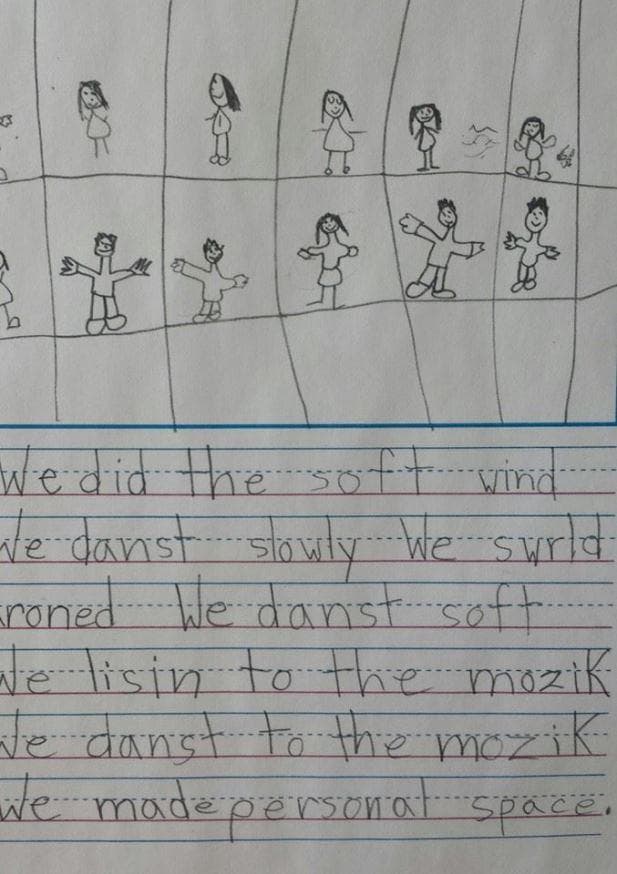 We did the soft wind
We danst slowly We swrld
roned We danst soft
We lisin to the mozik
We danst to the mozik
We made personal space.